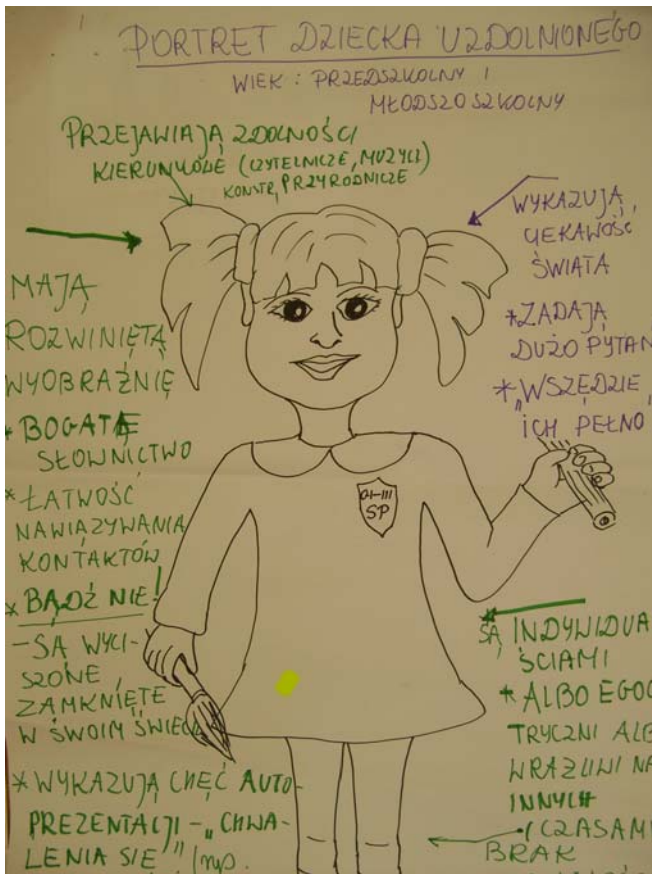 PORTRET DZIECKA UZDOLNIONEGO
WIEK : PRZEDSZKOLNY I
MŁODSZOSZKOLNY
PRZEJAWIAJĄ ZDOLNOŚCI
KIERUNKOWE (CZYTELNICZE, MUZYCZ)
KONSTR, PRZYRODNICZE
MAJĄ
ROZWINIĘTĄ
WYOBRAŹNIĘ
* BOGATE
SŁOWNICTWO
* ŁATWOŚĆ
NAWIĄZYWANIA
KONTAKTÓW
* BĄDŹ NIE!
- SĄ WYCI-
SZONE,
ZAMKNIĘTE
W SWOIM ŚWIECIE
* WYKAZUJĄ CHĘĆ AUTO-
PREZENTACJI - „CHWA-
LENIA SIĘ" (np.
WYKAZUJĄ
CIEKAWOŚĆ
ŚWIATA
* ZADAJĄ
DUŻO PYTAŃ
* „WSZĘDZIE
ICH PEŁNO
SP
SĄ INDYWIDUA
ŚCIAMI
* ALBO EGOC
TRYCZNI ALB
WRAŻLIWI NA
INNYCH
(CZASAMI
BRAK